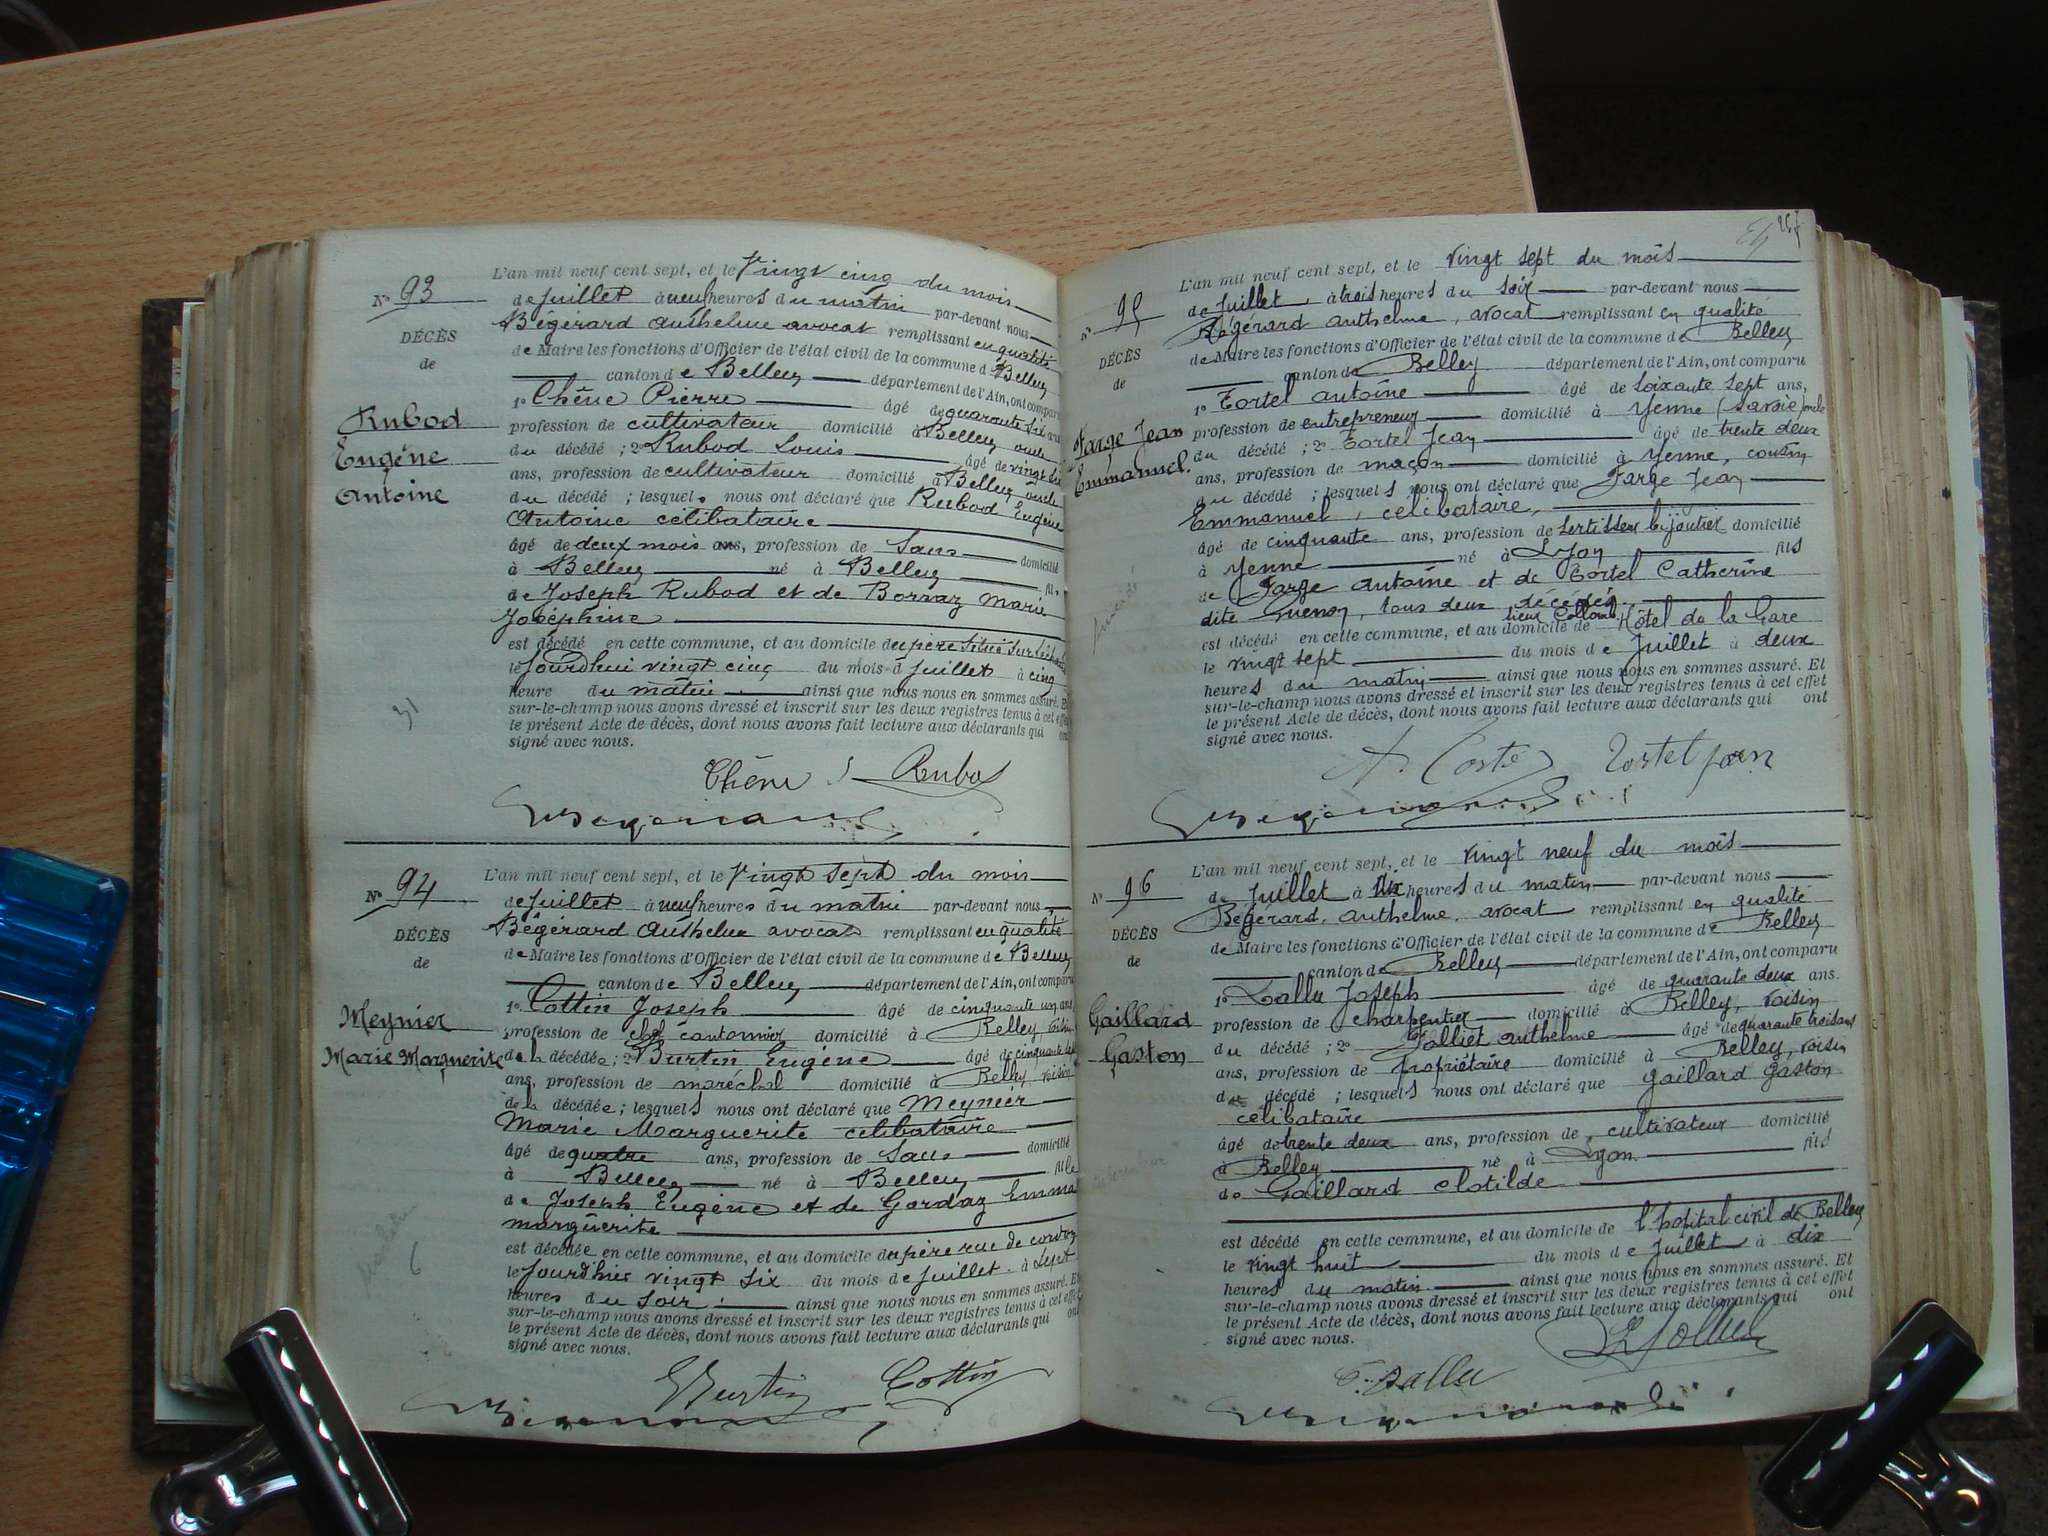 N° 93
DÉCÈS
de
Rubod
Eugène
Antoine
L'an mil neuf cent sept, et le Vingt cinq du mois
de Juillet à neuf heures du matin par-devant nous
Bégérard Anthelme avocat remplissant en qualité
de Maire les fonctions d'Officier de l'état civil de la commune de Belley
canton de Belley département de l'Ain, ont comparu
1° Chêne Pierre âgé de quarante six ans
profession de cultivateur domicilié à Belley oncle
du décédé ; 2° Rubod Louis âgé de vingt six
ans, profession de cultivateur domicilié à Belley oncle
du décédé ; lesquels nous ont déclaré que Rubod Eugène
Antoine célibataire
âgé de deux mois ans, profession de Sans domicilié
à Belley né à Belley fils
de Joseph Rubod et de Borvaz Marie
Joséphine
est décédé en cette commune, et au domicile du père situé
le Jourdhui vingt cinq du mois d Juillet à cinq
heure du matin ainsi que nous nous en sommes assuré. Et
sur-le-champ nous avons dressé et inscrit sur les deux registres tenus à cet effet
le présent Acte de décès, dont nous avons fait lecture aux déclarants qui ont
signé avec nous.
31
Chêne Rubod
N° 94
DÉCÈS
de
Meynier
Marie Marguerite
L'an mil neuf cent sept, et le Vingt sept du mois
de Juillet à neuf heures du matin par-devant nous
Bégérard Anthelme avocat remplissant en qualité
de Maire les fonctions d'Officier de l'état civil de la commune de Belley
canton de Belley département de l'Ain, ont comparu
1° Cottin Joseph âgé de cinquante un ans
profession de chef cantonnier domicilié à Belley voisin
de la décédée ; 2° Burtin Eugène âgé de cinquante
ans, profession de maréchal domicilié à Belley, voisin
de la décédée ; lesquels nous ont déclaré que Meynier
Marie Marguerite célibataire
âgé de quatre ans, profession de Sans domicilié
à Belley né à Belley fille
de Joseph Eugène et de Gordaz Emma
marguerite
est décédée en cette commune, et au domicile du père rue de
le Jourdhier vingt six du mois de Juillet à sept
heures du soir ainsi que nous nous en sommes assuré. Et
sur-le-champ nous avons dressé et inscrit sur les deux registres tenus à cet effet
le présent Acte de décès, dont nous avons fait lecture aux déclarants qui ont
signé avec nous.
6
Burtin Cottin
N° 95
DÉCÈS
de
Farge Jean
Emmanuel.
L'an mil neuf cent sept, et le vingt sept du mois
de Juillet à trois heures du soir par-devant nous
Bégérard Anthelme, avocat remplissant en qualité
de Maire les fonctions d'Officier de l'état civil de la commune de Belley
canton de Belley département de l'Ain, ont comparu
1° Tortel Antoine âgé de soixante sept ans,
profession de entrepreneur domicilié à Yenne (Savoie) oncle
du décédé ; 2° Tortel Jean âgé de trente deux
ans, profession de maçon domicilié à Yenne, cousin
du décédé ; lesquels nous ont déclaré que Farge Jean
Emmanuel, célibataire,
âgé de cinquante ans, profession de sertisseur bijoutier domicilié
à Yenne né à Lyon fils
de Farge Antoine et de Tortel Catherine
dite Guenon, tous deux décédés.
est décédé en cette commune, et au domicile de Hôtel de la Gare
le vingt sept du mois de Juillet à deux
heures du matin ainsi que nous nous en sommes assuré. Et
sur-le-champ nous avons dressé et inscrit sur les deux registres tenus à cet effet
le présent Acte de décès, dont nous avons fait lecture aux déclarants qui ont
signé avec nous.
Tortel Jean
N° 96
DÉCÈS
de
Gaillard
Gaston
L'an mil neuf cent sept, et le vingt neuf du mois
de Juillet à dix heures du matin par-devant nous
Bégérard, Anthelme, avocat remplissant en qualité
de Maire les fonctions d'Officier de l'état civil de la commune de Belley
canton de Belley département de l'Ain, ont comparu
1° Lallu Joseph âgé de quarante deux ans.
profession de charpentier domicilié à Belley, voisin
du décédé ; 2° Jolliet Anthelme âgé de quarante trois ans
ans, profession de propriétaire domicilié à Belley, voisin
du décédé ; lesquels nous ont déclaré que Gaillard Gaston
célibataire
âgé de trente deux ans, profession de cultivateur domicilié
à Belley né à Lyon fils
de Gaillard Clotilde
est décédé en cette commune, et au domicile de l'hopital civil de Belley
le vingt huit du mois de Juillet à dix
heures du matin ainsi que nous nous en sommes assuré. Et
sur-le-champ nous avons dressé et inscrit sur les deux registres tenus à cet effet
le présent Acte de décès, dont nous avons fait lecture aux déclarants qui ont
signé avec nous.